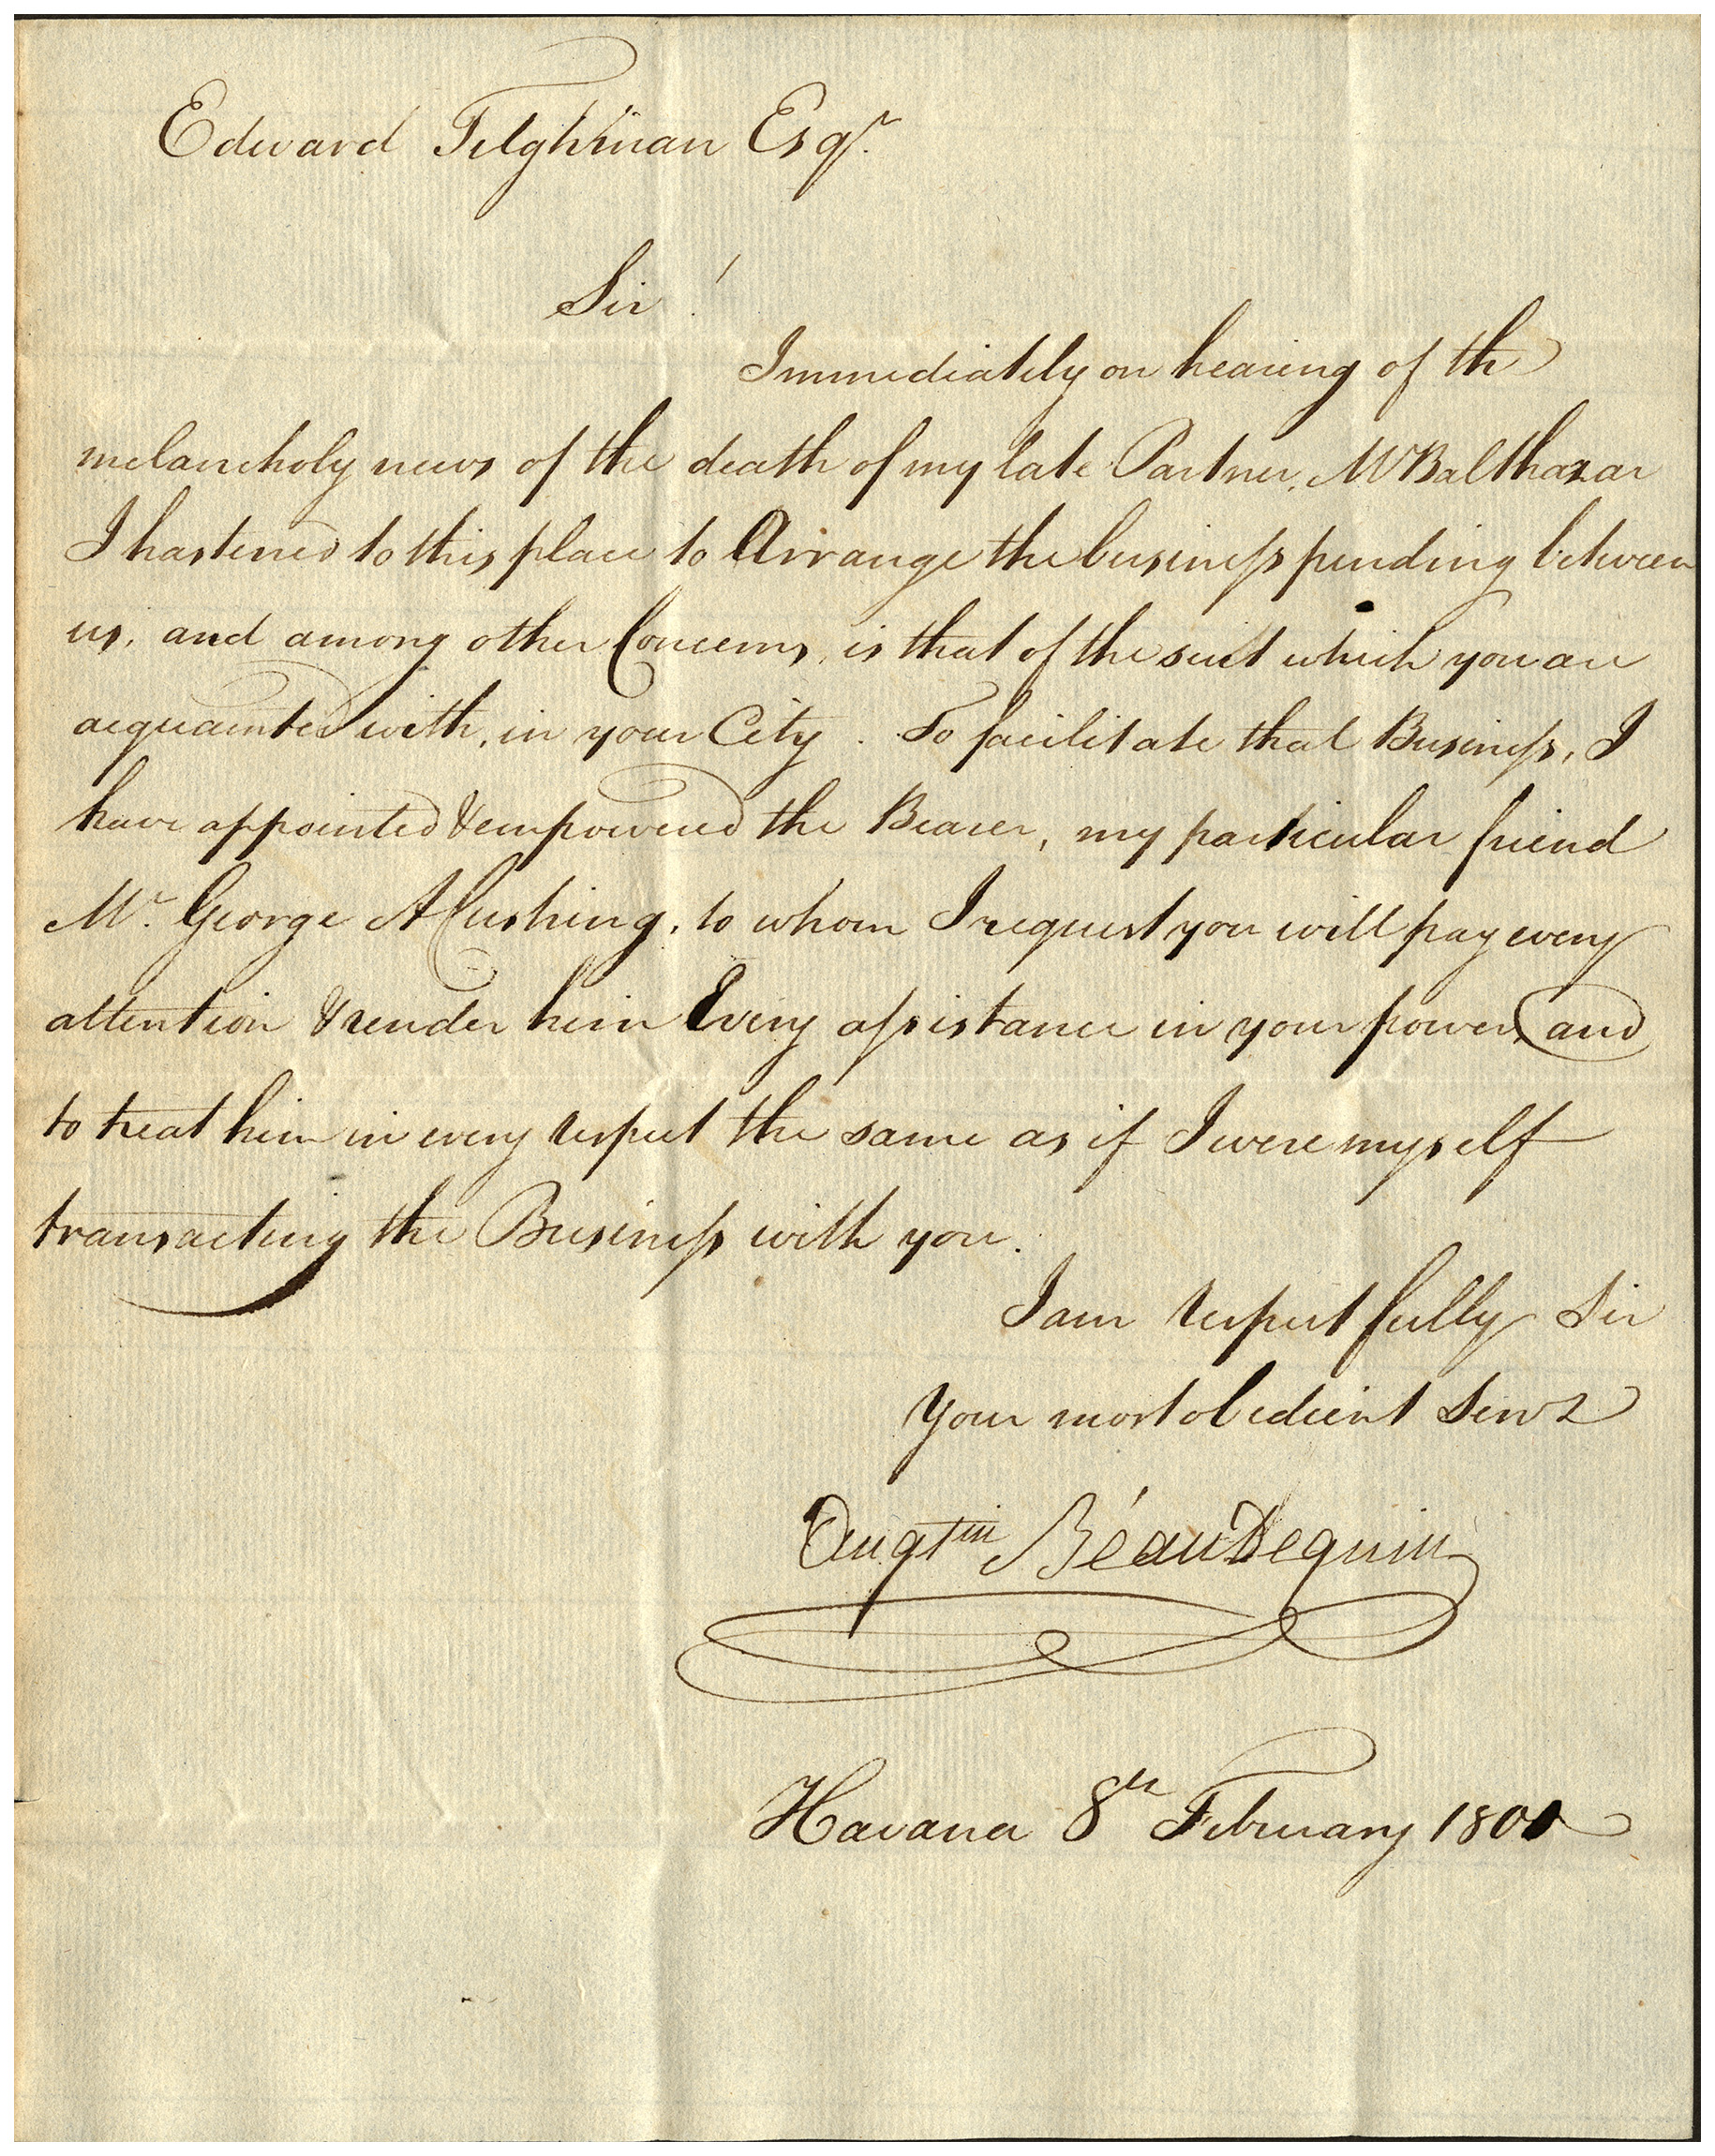 Edward Tilghman Esqr.
Sir!
Immediately on hearing of the
melancholy news of the death of my late Partner, Mr Balthazar
I hastened to this place to Arrange the business pending between
us, and among other Concerns, is that of the suit which you are
acquainted with, in your City. To facilitate that Business, I
have appointed & empowered the Bearer, my particular friend
Mr. George A Cushing, to whom I request you will pay every
attention & render him Every assistance in your power, and
to treat him in every respect the same as if I were myself
transacting the Business with you.
I am respectfully Sir
Your most obedient Servt
Augtin Béaudequin
Havana 8th February